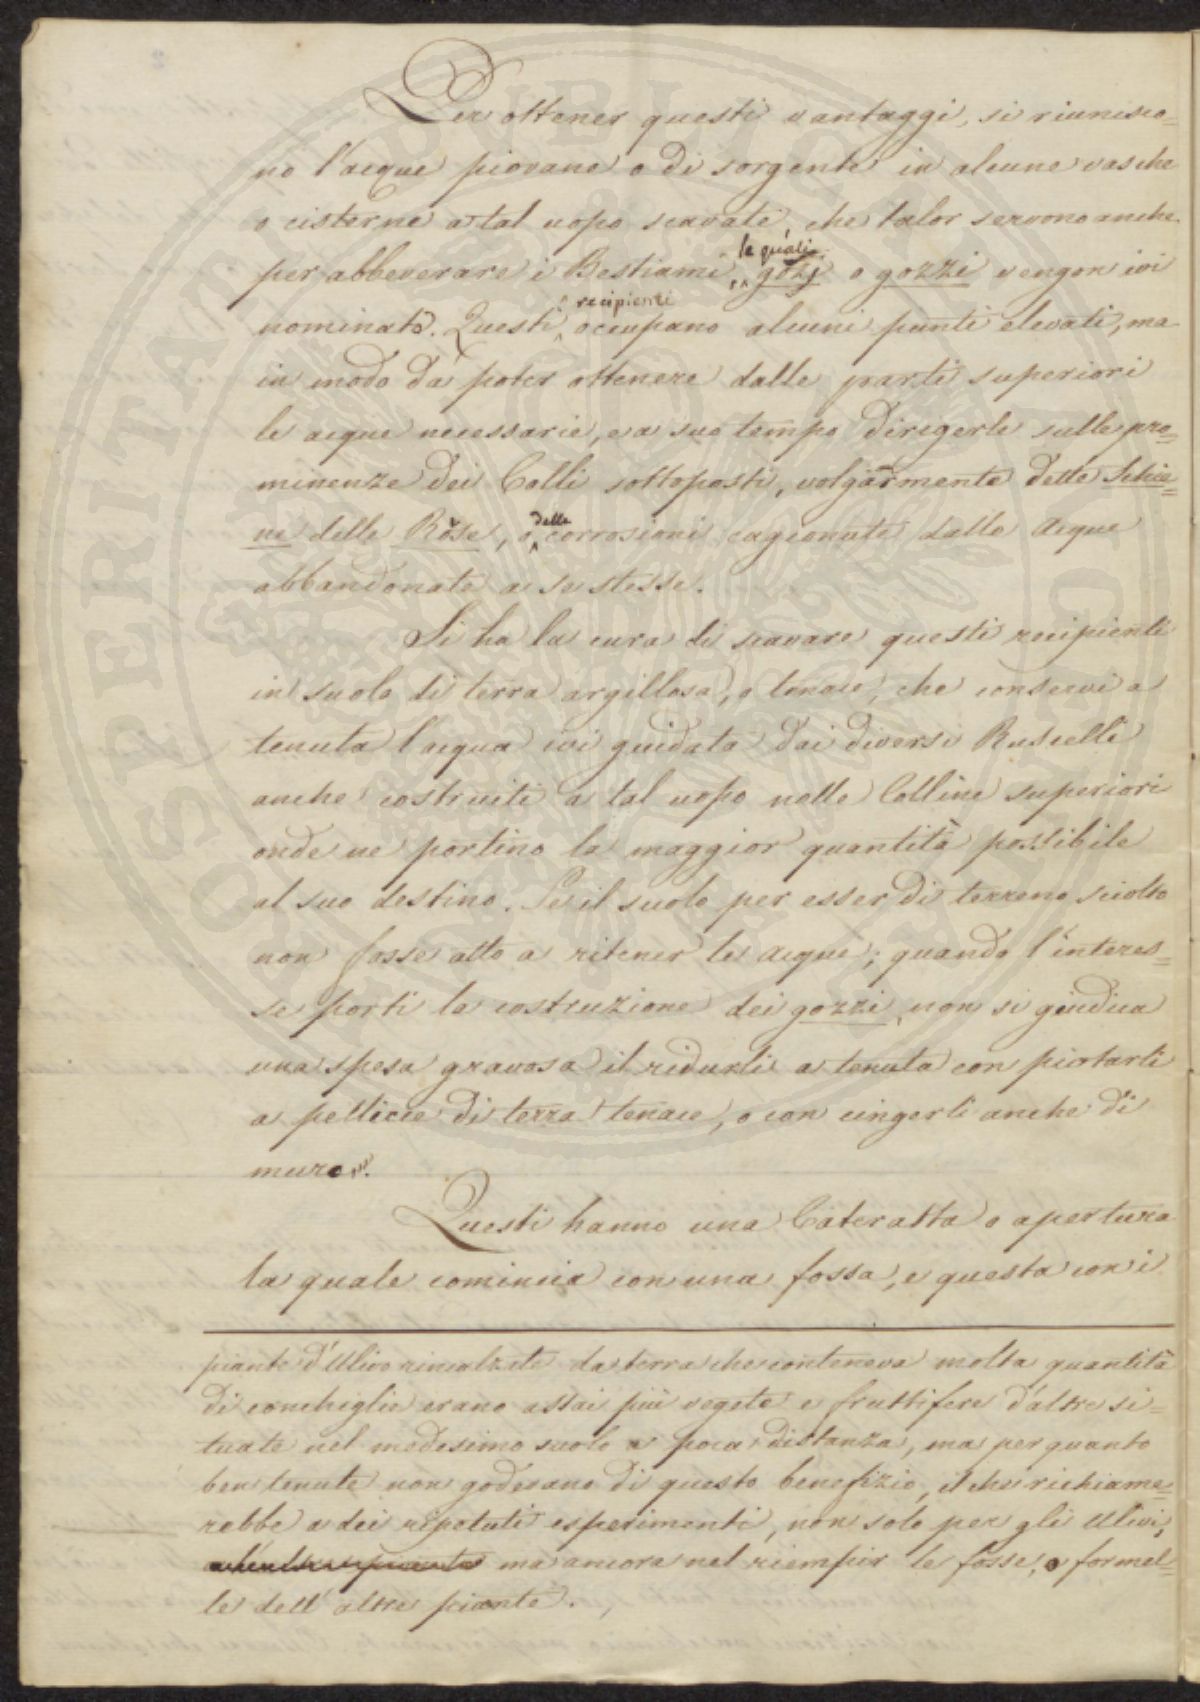 Per ottener questi vantaggi, si riunisco=
no l'acque piovane o di sorgente in alcune vasche
o cisterne a tal uopo scavate, che talor servono anche
per abbeverare i Bestiami, le quali gozj o gozzi vengon ivi
nominate. Questi recipienti occupano alcuni punti elevati, ma
in modo da poter ottenere dalle parti superiori
le acque necessarie, e a suo tempo dirigerle sulle pro=
minenze dei Colli sottoposti, volgarmente dette Schie=
ne delle Rose, o delle corrosioni cagionate dalle Acque
abbandonate a se stesse.
Si ha la cura di scavare questi recipienti
in suolo di terra argillosa, o tenace, che conservi a
tenuta l'acqua ivi guidata dai diversi Ruscelli
anche costruiti a tal uopo nelle Colline superiori
onde ne portino la maggior quantità possibile
al suo destino. Se il suolo per esser di terreno sciolto
non fosse atto a ritener le acque; quando l'interes=
se porti la costruzione dei gozzi, non si giudica
una spesa gravosa il ridurli a tenuta con piotarli
a pelliccie di terra tenace, o con cingerli anche di
muro.
Questi hanno una Cateratta o apertura
la quale comincia con una fossa, e questa con i
piante d'Ulivo rincalzate da terra che conteneva molta quantità
di conchiglie erano assai più vegete e fruttifere d'altre si=
tuate nel medesimo suolo a poca distanza, ma per quanto
ben tenute non godevano di questo benefizio, il che richiame=
rebbe a dei ripetuti esperimenti, non solo per gli Ulivi,
ma ancora nel riempir le fosse, o formel=
le dell'altre piante.